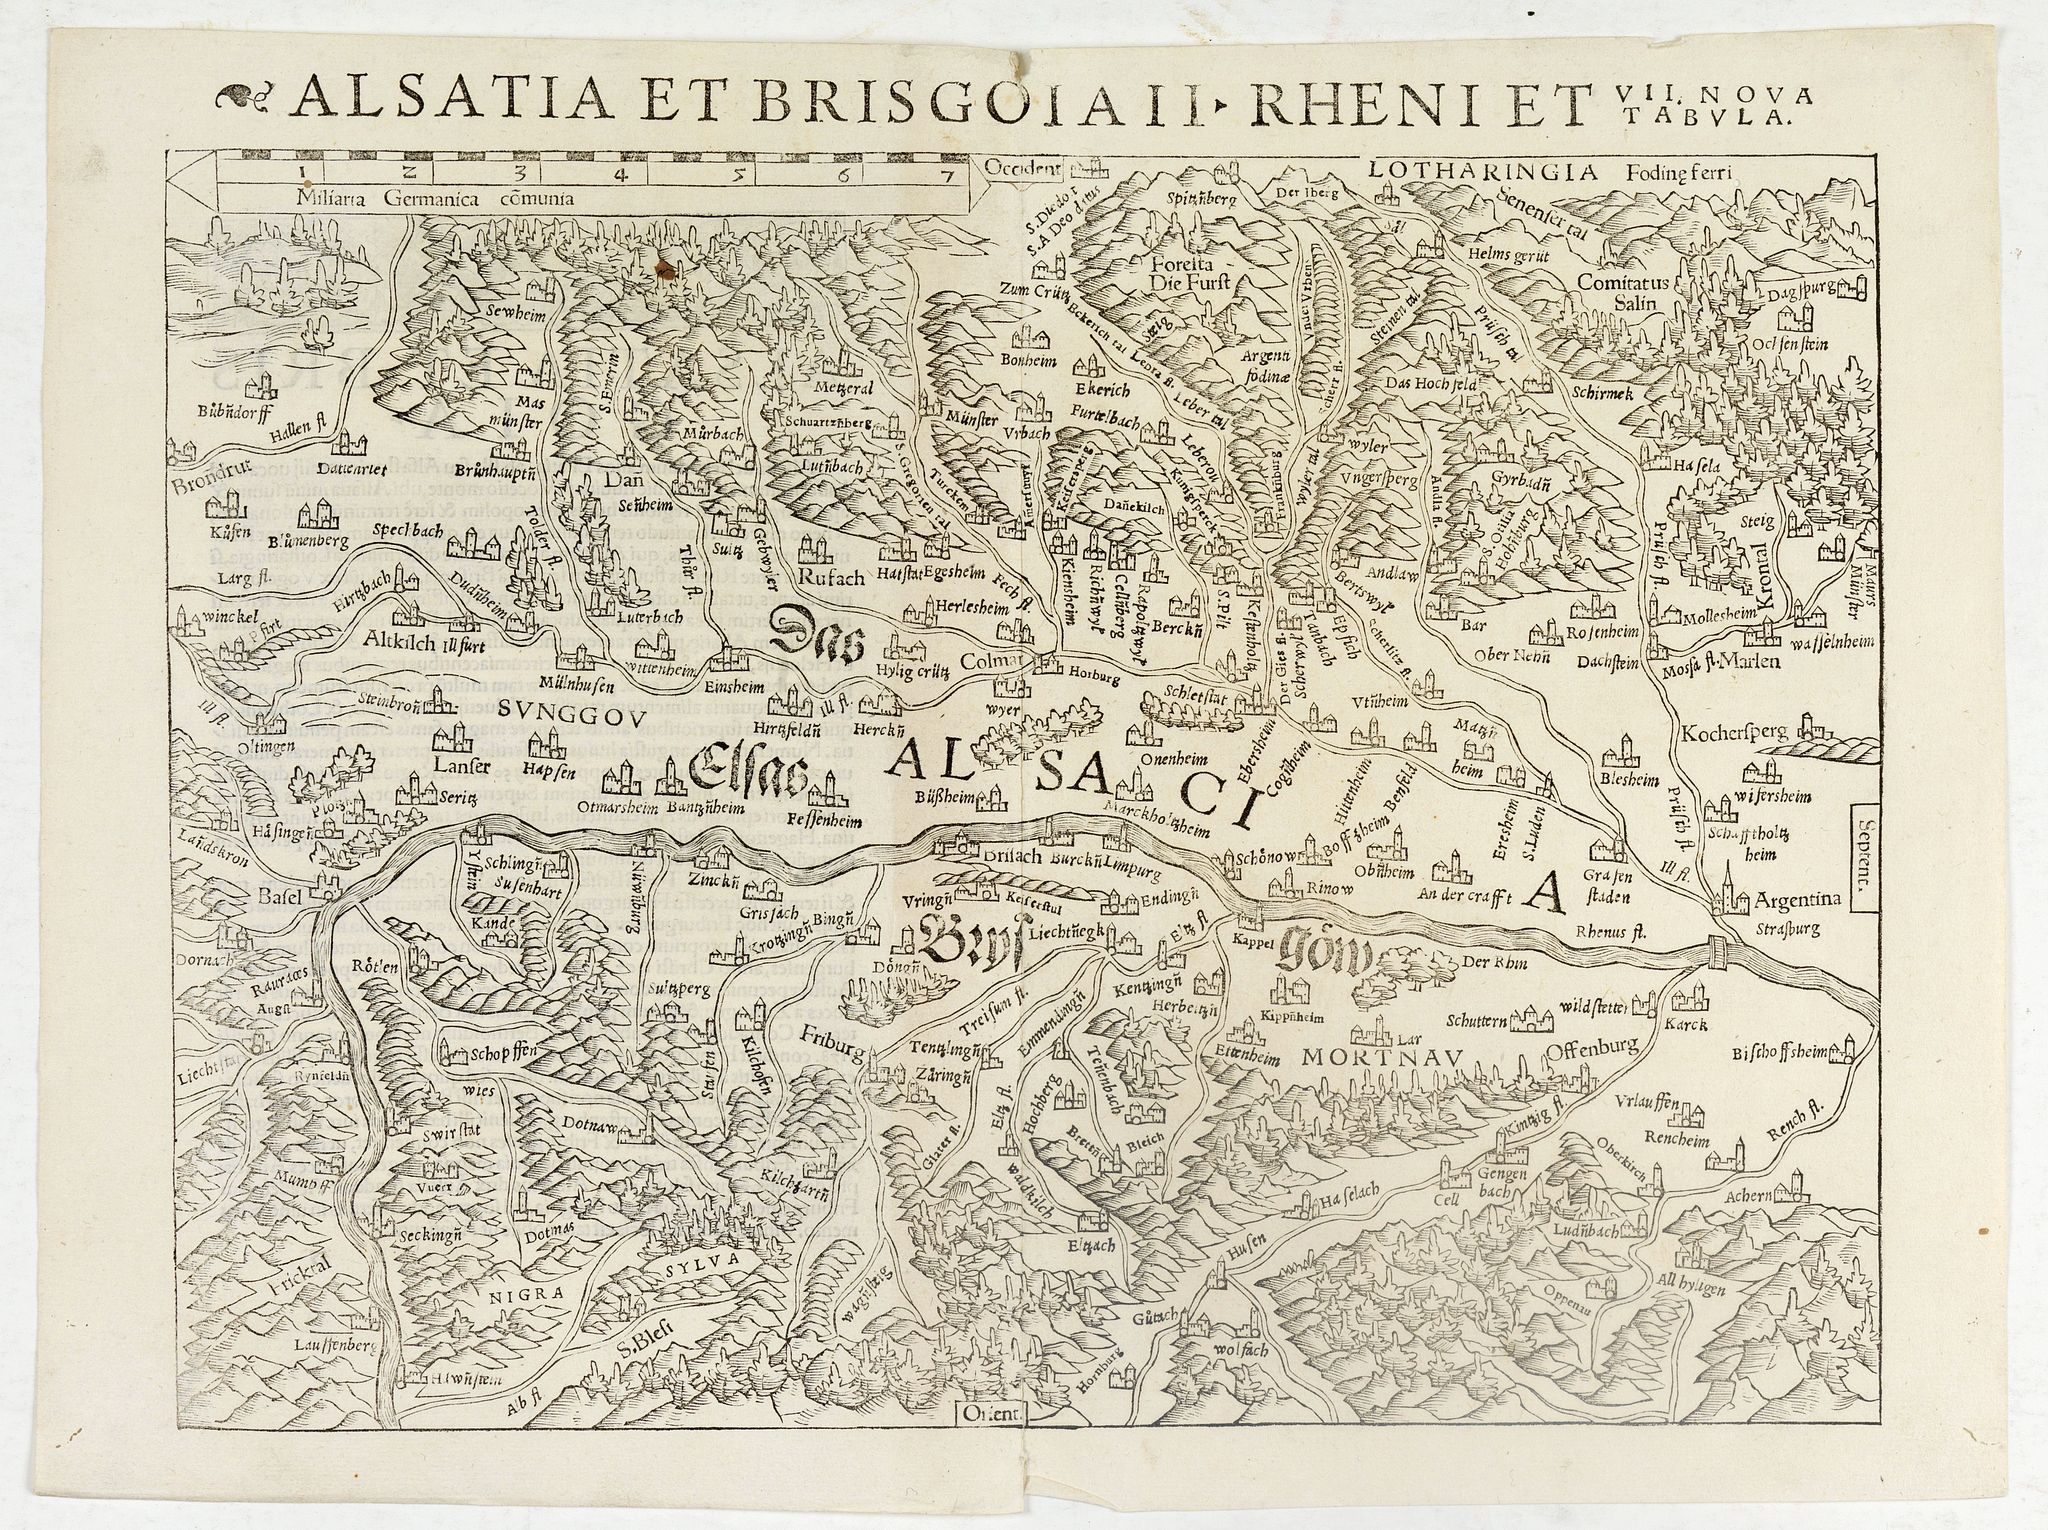 ALSATIA ET BRISGOIA II RHENI ET VII. NOVA
TABVLA.
1 2 3 4 5 6 7
Miliaria Germanica cõmunia
Occident
LOTHARINGIA Fodinę ferri
Spitzñberg
Der Iberg
S. Diedolt
S.A Deodatus
Senenser tal
Helms gerüt
Foresta
Die Furst
Comitatus
Salin
Dagspurg
Zum Crütz
Steig
Sewheim
Eckerich tal
Steinen tal
Prüsch tal
Ochsenstein
Bonheim
Lebra fl.
Argenti
fodinæ
Metzeral
Ekerich
Leber tal
Das Hochfeld
Schirmek
Bübñdorff
Mas
münster
S. Emerin
Münster
Hallen fl
Schuartzñberg
Vrbach
Furtelbach
wyler
Mürbach
Dattenriet
Brünhauptñ
Lutñbach
S. Gregorien tal
Keisersperg
Leberou
Vngersperg
Hasela
Brondrut
Dañ
Turckem
Küngsperck
wyler tal
Andla fl.
Gyrbadñ
Señheim
Dañekilch
Küsen
Blümenberg
Speclbach
Toder fl.
Sultz
Gebwyler
Thür fl.
S. Otilia
Hohñburg
Prüsch fl.
Steig
Larg fl.
Hirtzbach
Dudñheim
Rufach
Hatstat
Egesheim
Fech fl.
Kiensheim
Richñwyl
Cellñberg
Rapoltzwyl
Andlaw
Krontal
Maurs
Münster
winckel
Pfirt
Luterbach
Herlesheim
Berckñ
S. Pilt
Kestenholtz
Bertswyl
Bar
Rosenheim
Mollesheim
Altkilch
Illfurt
Das
Scherwyler
Tanbach
Epfich
wasselnheim
wittenheim
Hylig crütz
Colmar
Horburg
Der Gies fl.
Ober Nehñ
Dachstein
Mossa fl.
Marlen
Mülnhusen
Einsheim
Steinbroñ
SVNGGOV
Ill fl.
wyer
Schletstat
Vtñheim
Ill fl.
Oltingen
Hirtzfeldñ
Herckñ
Matzñ
heim
Kochersperg
Lanser
Hapsen
Elsas
ALSACIA
Onenheim
Ebersheim
Cogñheim
Blesheim
Seritz
Otmarsheim
Bantzñheim
Fessenheim
Büßheim
Marckholtzheim
Hittenheim
Benfeld
wifersheim
Häsingeñ
Bofftzheim
Eresheim
S. Luden
Prüsch fl.
Schafftholtz
heim
Septent.
Lañdskron
Schlingñ
Zinckñ
Brisach
Burckñ
Limpurg
Schönow
Obñheim
Ill fl.
Basel
Ystein
Susenhart
Nüwñburg
Grissach
Vringñ
Keiserstul
Endingñ
Rinow
An der crafft
Grafen
staden
Argentina
Strasburg
Kande
Bingñ
Krotzingñ
Brysgöw
Liechtñegk
Eltz fl
Kappel
Rhenus fl.
Dornach
Rötlen
Döngñ
Der Rhin
Rauraces
Augst
Sultzperg
Kentzingñ
Herbeltzñ
Kippñheim
Schuttern
wildstetter
Karck
Treisum fl.
Emmendingñ
Liechtstat
Schopffen
Stauffen
Kilchofen
Friburg
Tentzlingñ
Teñenbach
Ettenheim
Lar
MORTNAV
Offenburg
Bischoffsheim
Rynfeldñ
wies
Zäringñ
Eltz fl.
Hochberg
Vrlauffen
Rencheim
Swirstat
Dotnaw
Glater fl.
Bleich
Kintzig fl.
Rench fl.
Mumpff
Kilchzartñ
waldkilch
Haselach
Cell
Gengen
bach
Oberkirch
Achern
Seckingñ
Dotmas
Eltzach
Husen
Ludñbach
Frickral
NIGRA
SYLVA
wagñsteig
All hyligen
Oppenau
Lauffenberg
S. Blesi
Gütach
wolfach
Hornburg
Ab fl
Orient.